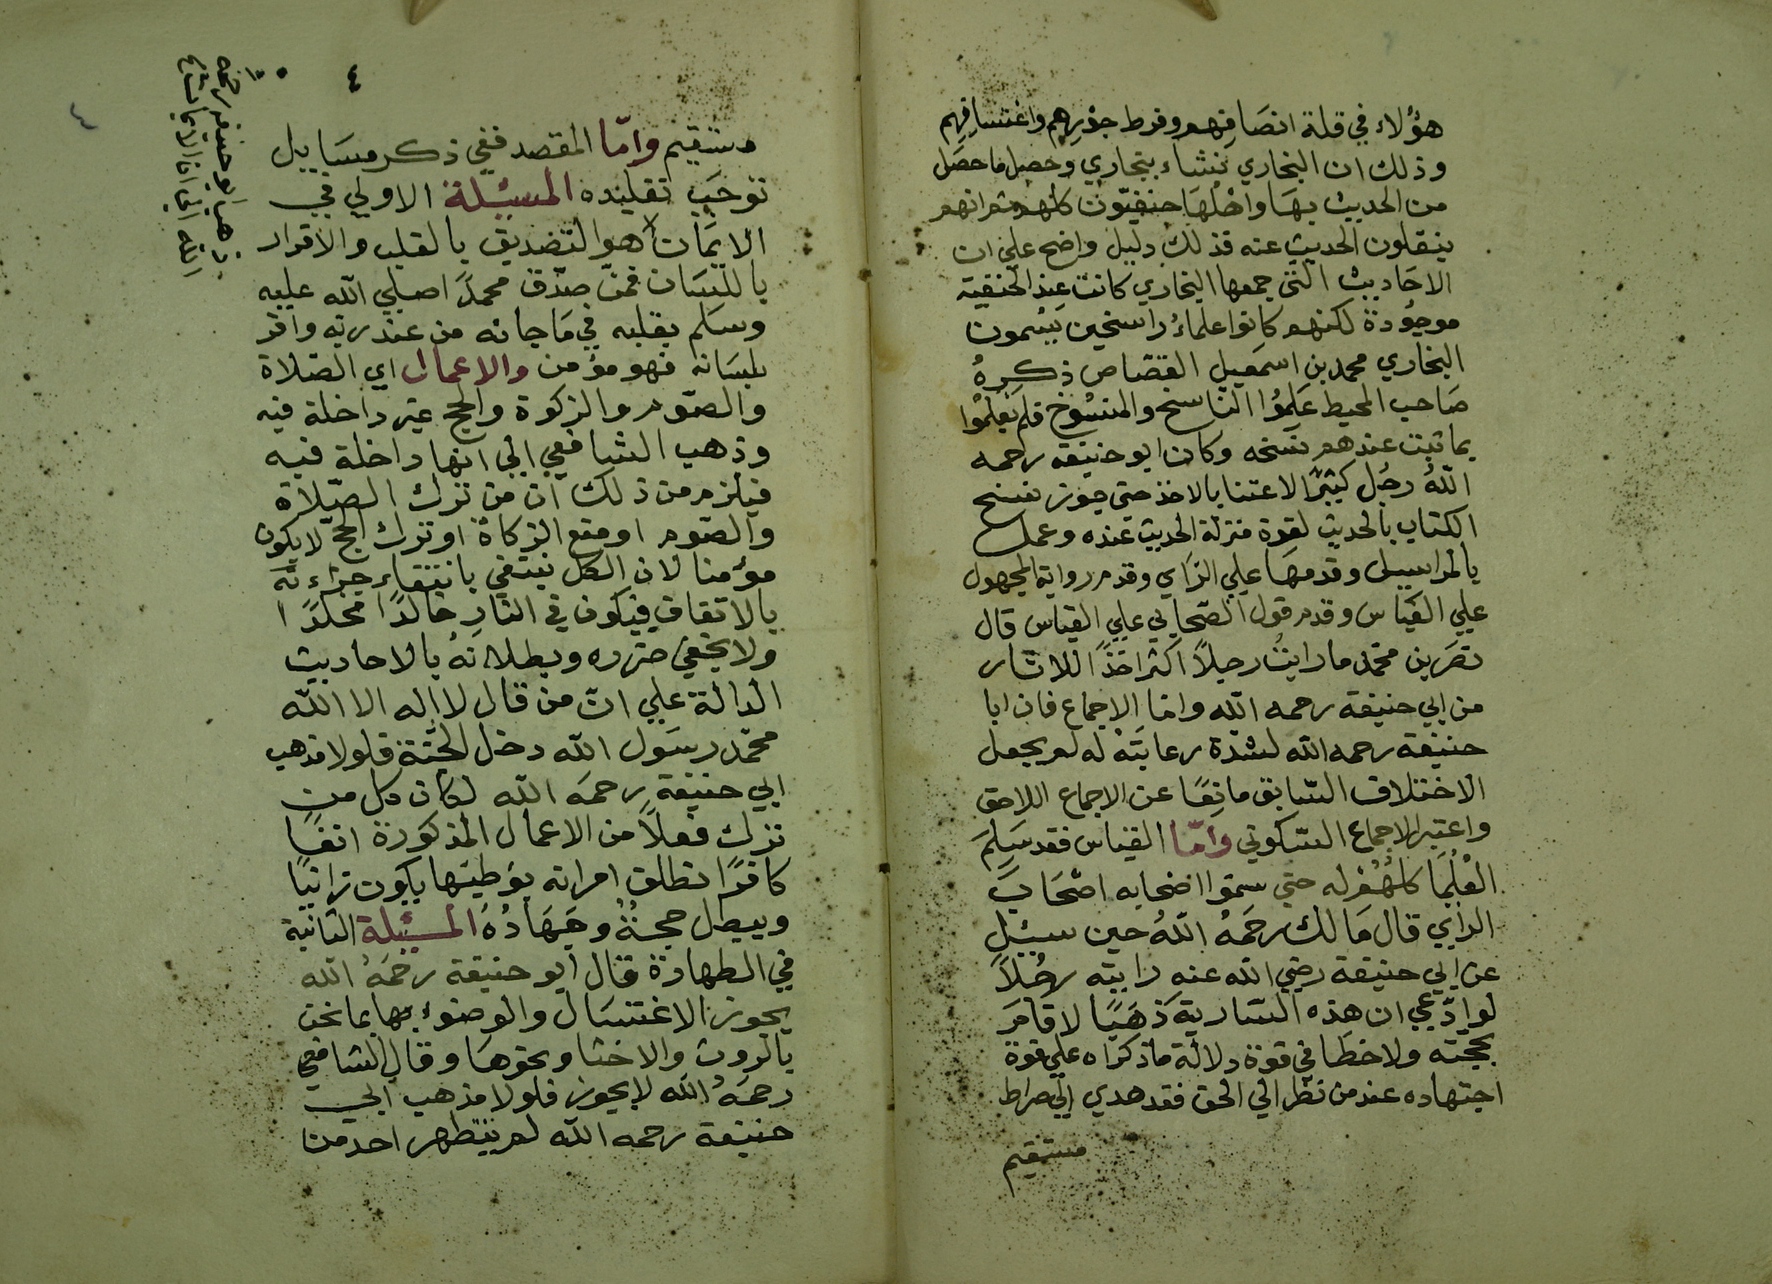 هؤلاء في قلة انصافهم وفرط جورهم واعتسافهم
وذلك ان البخاري نشاء ببخاري وحصل ما حصل
من الحديث بها واهلها حنفيّون كلهم ثم انهم
ينقلون الحديث عنه فذلك دليل واضح علي ان
الاحاديث التي جمعها البخاري كانت عند الحنفية
موجودة لكنهم كانوا علماء راسخين يسمون
البخاري محمد بن اسمعيل القصاص ذكره
صاحب المحيط علموا الناسخ والمنسوخ فلم يعلموا
بما ثبت عندهم نسخه وكان ابو حنيفة رحمه
الله رجل كثير الاعتنا بالاخذ حتي جوز نسخ
الكتاب بالحديث لقوة منزلة الحديث عنده وعمل
بالمراسيل وقدمها علي الراي وقدم رواية المجهول
علي القياس وقدم قول الصحابي علي القياس قال
نصر بن محمد ما رايت رجلاً اكثر اخذًا للاثار
من ابي حنيفة رحمه الله واما الاجماع فان ابا
حنيفة رحمه الله لشدة رعايته له لم يجعل
الاختلاف السابق مانعًا عن الاجماع اللاحق
واعتبر الاجماع السكوتي وامّا القياس فقد سلم
العلما كلهم له حتي سموا اصحابه اصحاب
الراي قال مالك رحمه الله حين سيئل
عن ابي حنيفة رضي الله عنه رايته رجُلاً
لو ادّعي ان هذه السارية ذهبًا لاقام
بحجته ولا خطا في قوة دلالة ما ذكراه علي قوة
اجتهاده عند من نظر الي الحق فقد هدي الي صراط
مستقيم
٤
مستقيم وامّا المقصد ففي ذكر مسايل
توجب تقليده المسيئلة الاولي في
الايمان هو التصديق بالقلب والاقرار
باللسان فمن صدّق محمدًا صلي الله عليه
وسلم بقلبه في ما جا به من عند ربه واقر
بلسانه فهو مؤمن والاعمال اي الصلاة
والصوم والزكوة والحج غير داخلة فيه
وذهب الشافعي الي انها داخلة فيه
فيلزم من ذلك ان من ترك الصلاة
والصوم او منع الزكاة او ترك الحج لا يكون
مؤمنا لان الكل ينتفي بانتفاء جزءه
بالاتفاق فيكون في النار خالدًا مخلدًا
ولا يخفي ضرره وبطلانه بالاحاديث
الدالة علي انّ من قال لا اله الا الله
محمد رسول الله دخل الجنّة فلولا مذهب
ابي حنيفة رحمه الله لكان كل من
ترك فعلاً من الاعمال المذكورة انفًا
كافرًا تطلق امراته بوطيها يكون زانيًا
ويبطل حجة وجهاده المسيئلة الثانية
في الطهارة قال ابو حنيفة رحمه الله
يجوز الاغتسال والوضوء بها بما سخن
بالروث والاخثا ونحوها وقال الشافعي
رحمه الله لا يجوز فلولا مذهب ابي
حنيفة رحمه الله لم يتطهر احد من